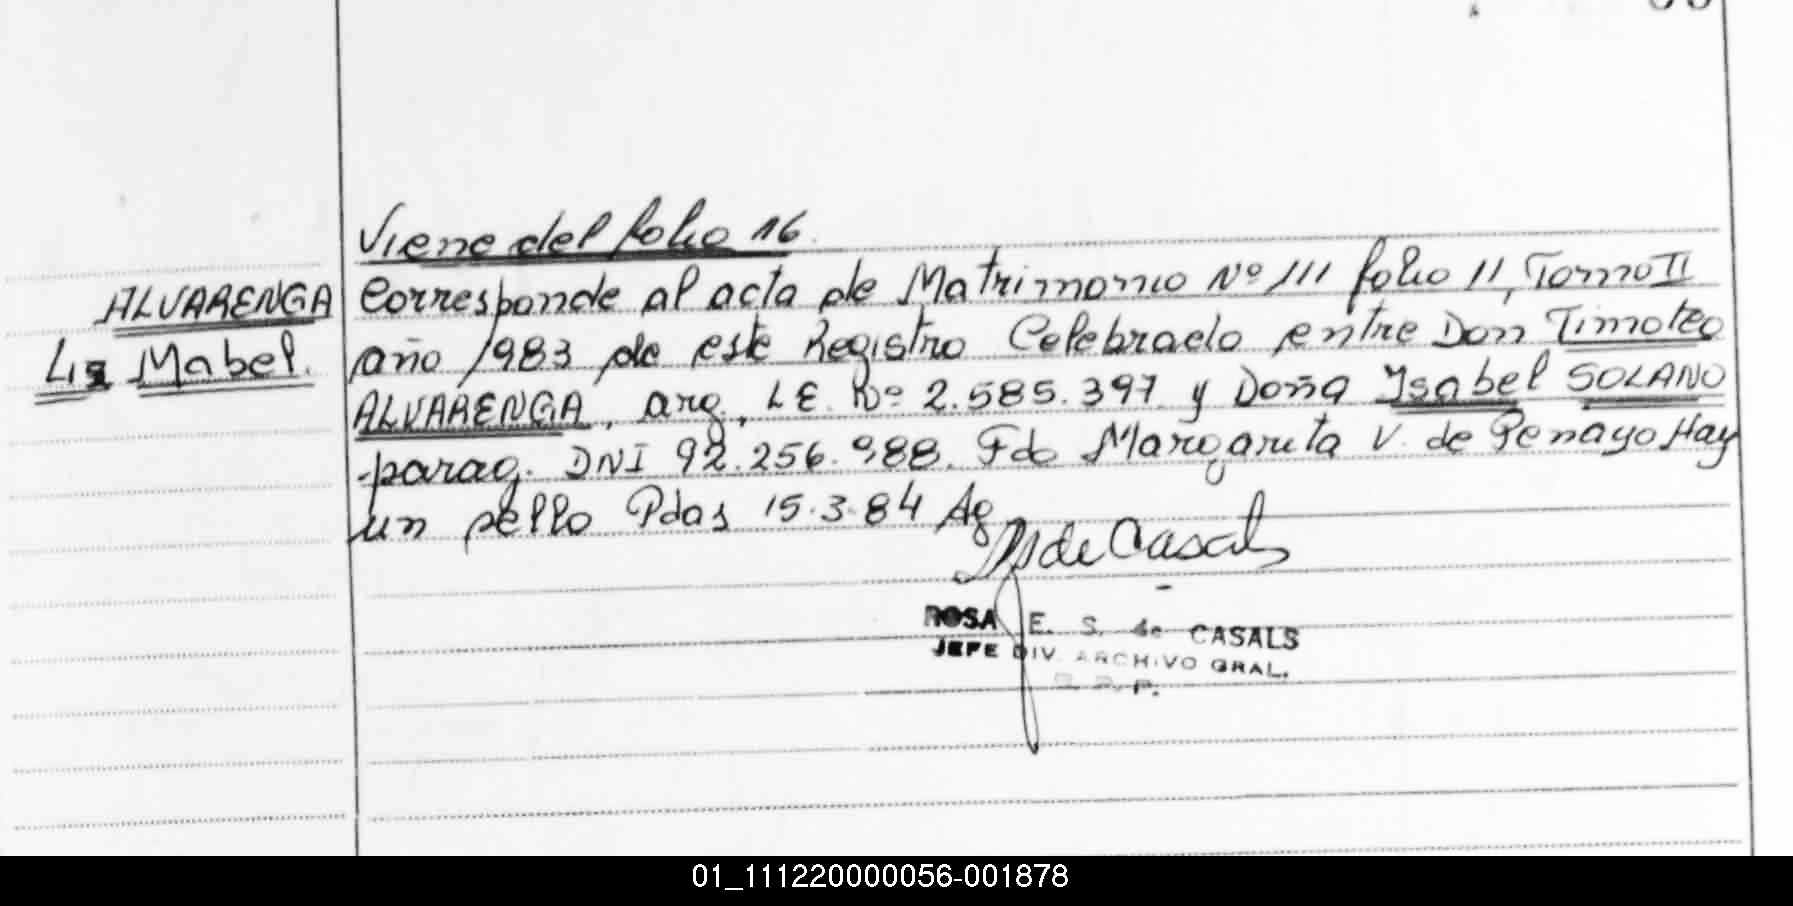 Viene del folio 16.
ALVARENGA
Lis Mabel.
Corresponde al acta de Matrimonio Nº 111 folio 11, Tomo II
año 1983 de este Registro Celebrado entre Don Timoteo
ALVARENGA, arg, LE. Nº 2.585.397 y Doña Ysabel SOLANO
parag. DNI 92.256.988. Fdo Margarita V. de Penayo Hay
un sello Pdas 15.3.84 Ag
de Casals
ROSA E. S. de CASALS
JEFE DIV. ARCHIVO GRAL.
01_111220000056-001878